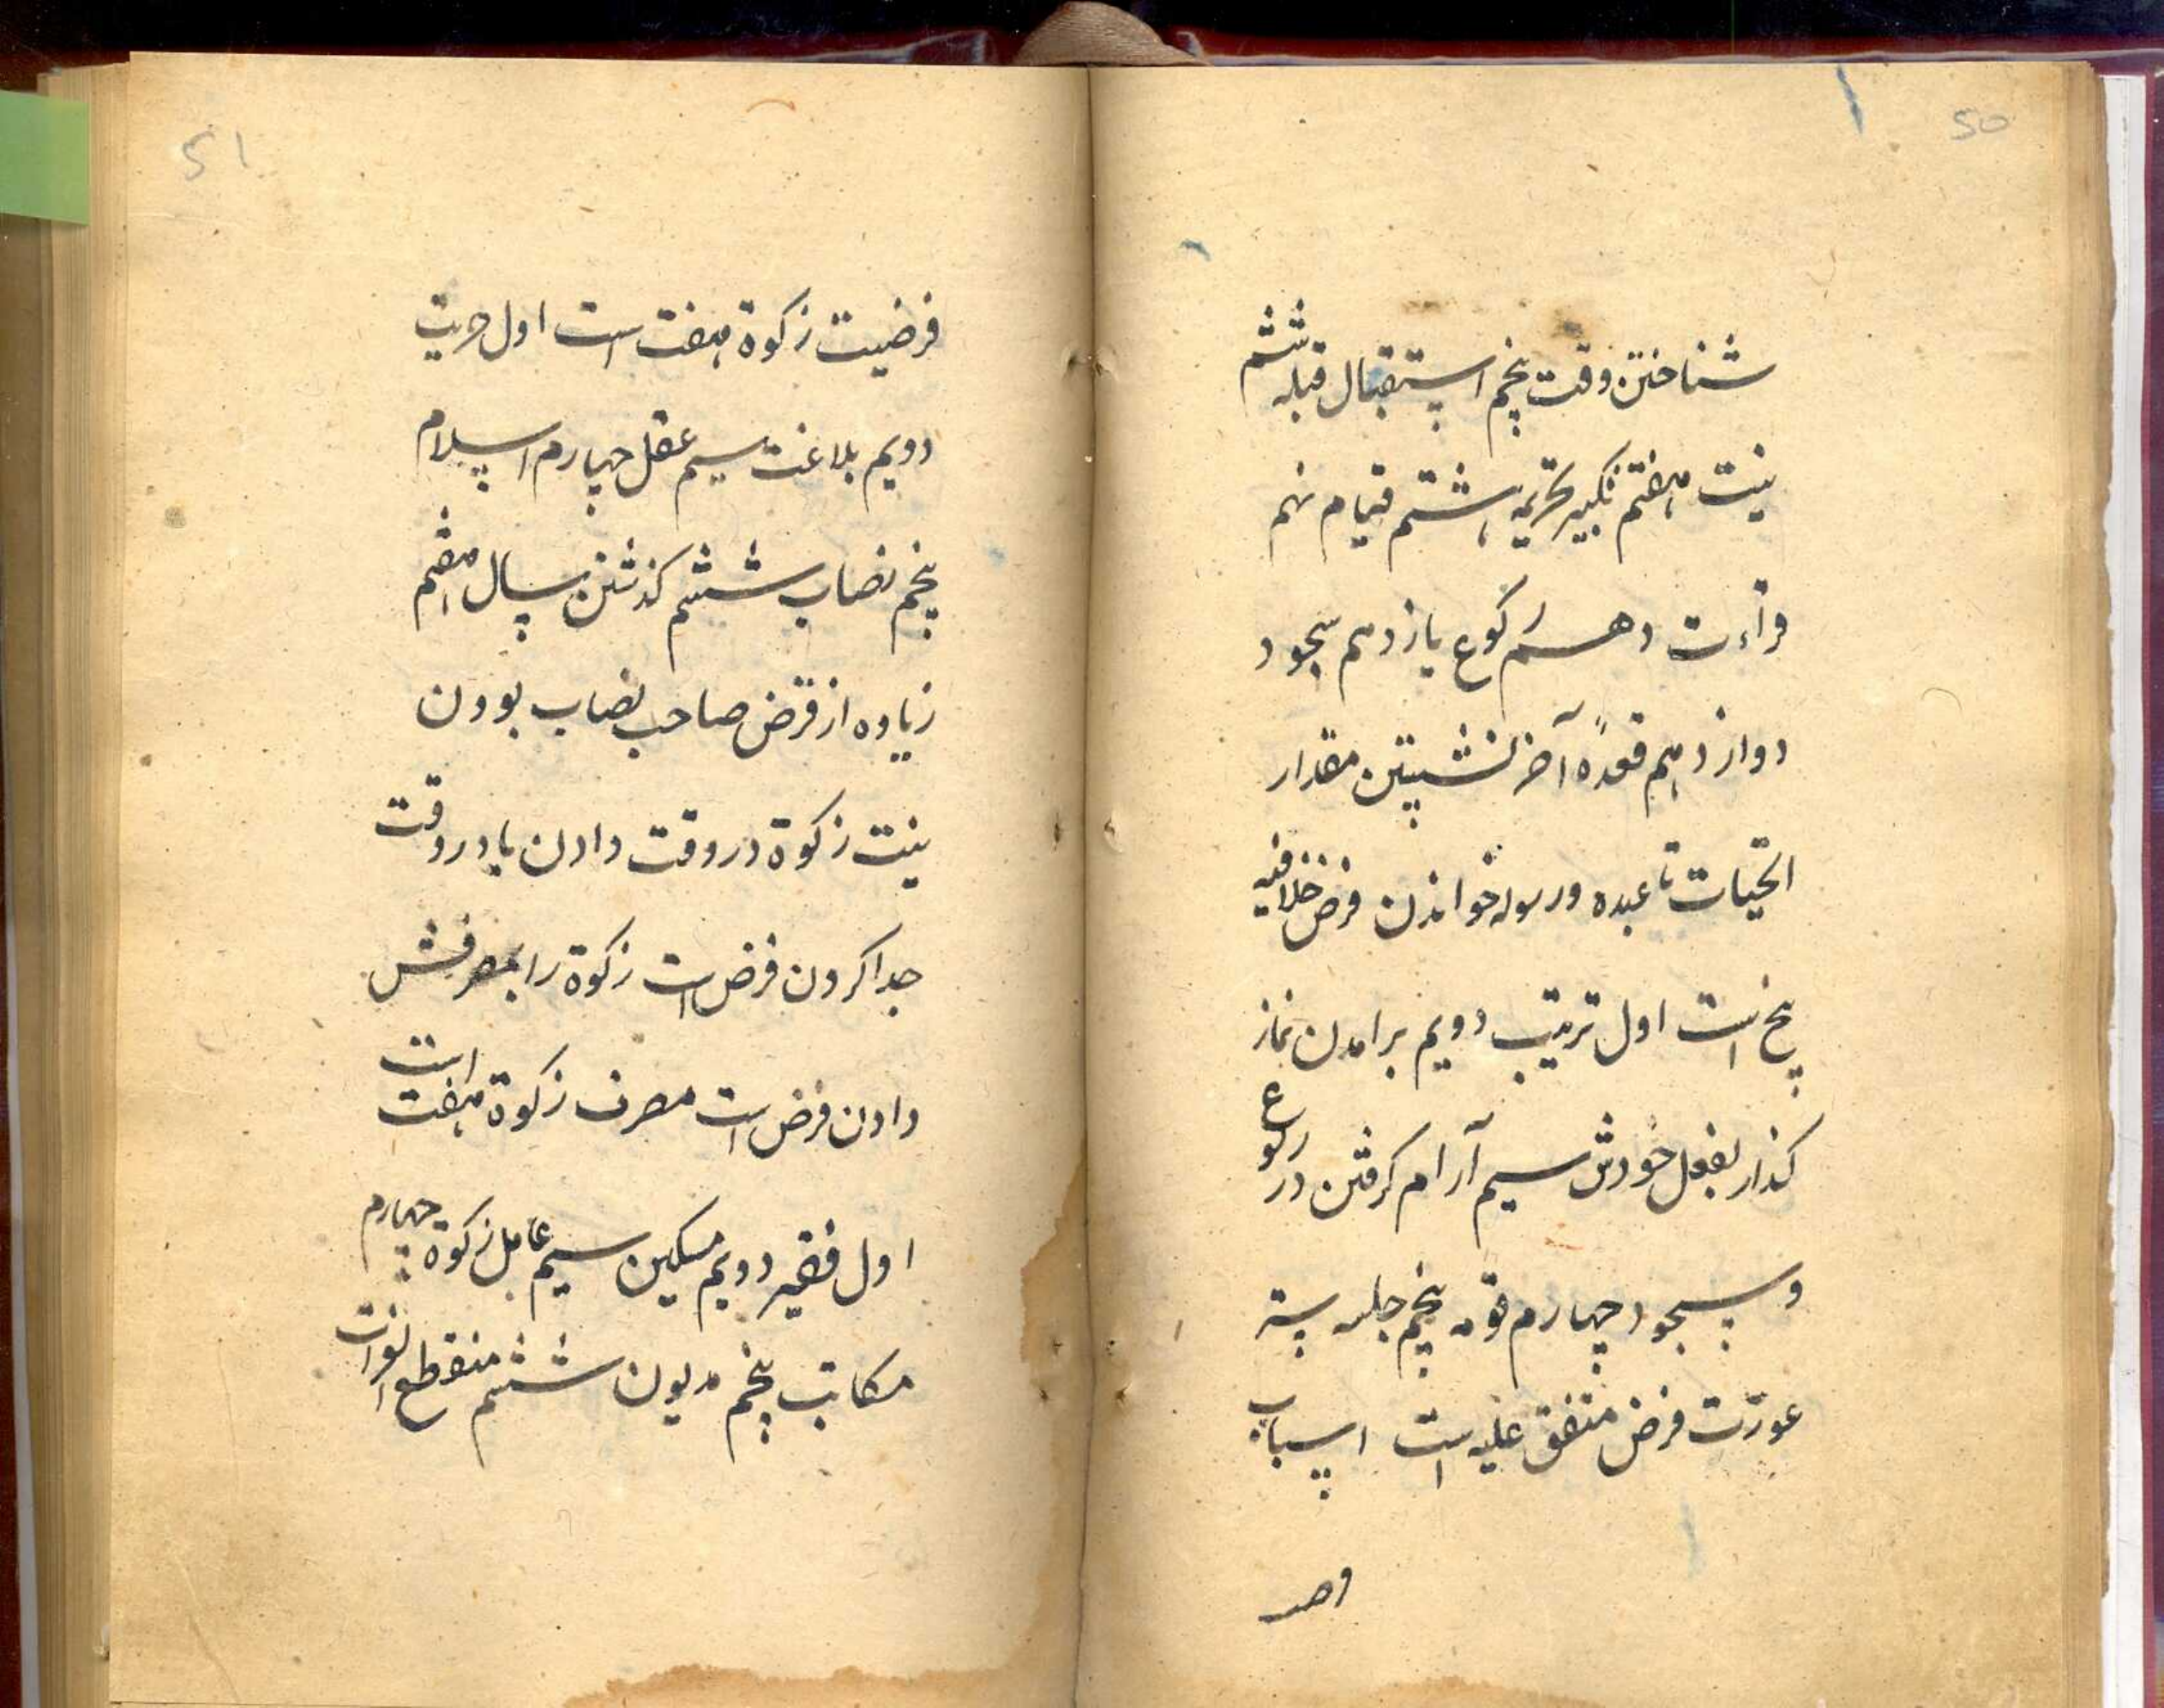 50
شناختن وقت پنجم استقبال قبله ششم
نیت هفتم تکبیر تحریمه هشتم قیام نهم
قرأءت دهم رکوع یازدهم سجود
دوازدهم قعدهٔ آخر نشستن مقدار
التحیات تا عبده ورسوله خواندن فرض خلافیه
پنج است اول ترتیب دویم برامدن نماز
کذار بفعل خودش سیم آرام کرفتن در رکوع
وسجود چهارم قومه پنجم جلسه ستر
عورت فرض متفق علیه است اسباب
51
فرضیت زکوة هفت است اول حریت
دویم بلاغت سیم عقل چهارم اسلام
پنجم نصاب ششم کذشتن سال هفتم
زیاده از قرض صاحب نصاب بودن
نیت زکوة در وقت دادن یا در وقت
جدا کردن فرض است زکوة را بمصرفش
دادن فرض است مصرف زکوة هفت است
اول فقیر دویم مسکین سیم عامل زکوة چهارم
مکاتب پنجم مدیون ششم منقطع الغزات